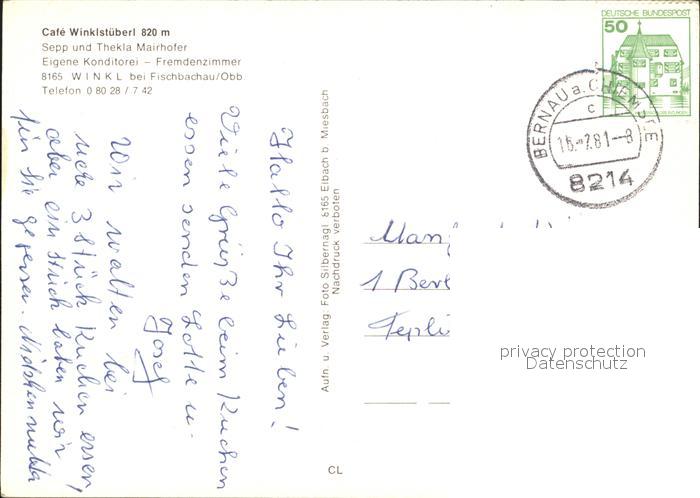 Café Winklstüberl 820 m
Sepp und Thekla Mairhofer
Eigene Konditorei – Fremdenzimmer
8165 WINKL bei Fischbachau/Obb.
Telefon 0 80 28 / 7 42
Hallo Ihr Lieben!
Viele Grüße beim Kuchen
essen senden Lotte u.
Josef
Wir wollten bei
nicht 3 Stück Kuchen essen,
aber ein Stück haben wir
für Sie gegessen.
Aufn. u. Verlag: Foto Silbernagl 8165 Elbach b. Miesbach
Nachdruck verboten
DEUTSCHE BUNDESPOST
50
BERNAU a. CHIEMSEE
c
16.-7.81-8
8214
Manf
1 Berl
Tepli
privacy protection
Datenschutz
CL